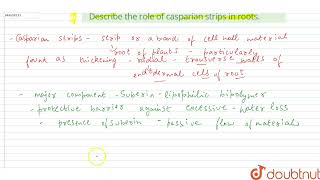 Describe the role of casparian strips in roots.
- Casparian strips - strip or a band of cell wall material
root of plants - particularly
found as thickening - radial - transverse walls of
endodermal cells of root
- major component - Suberin - lipophilic biopolymer
- protective barrier against excessive water loss
- presence of suberin - passive flow of materials
doubtnut